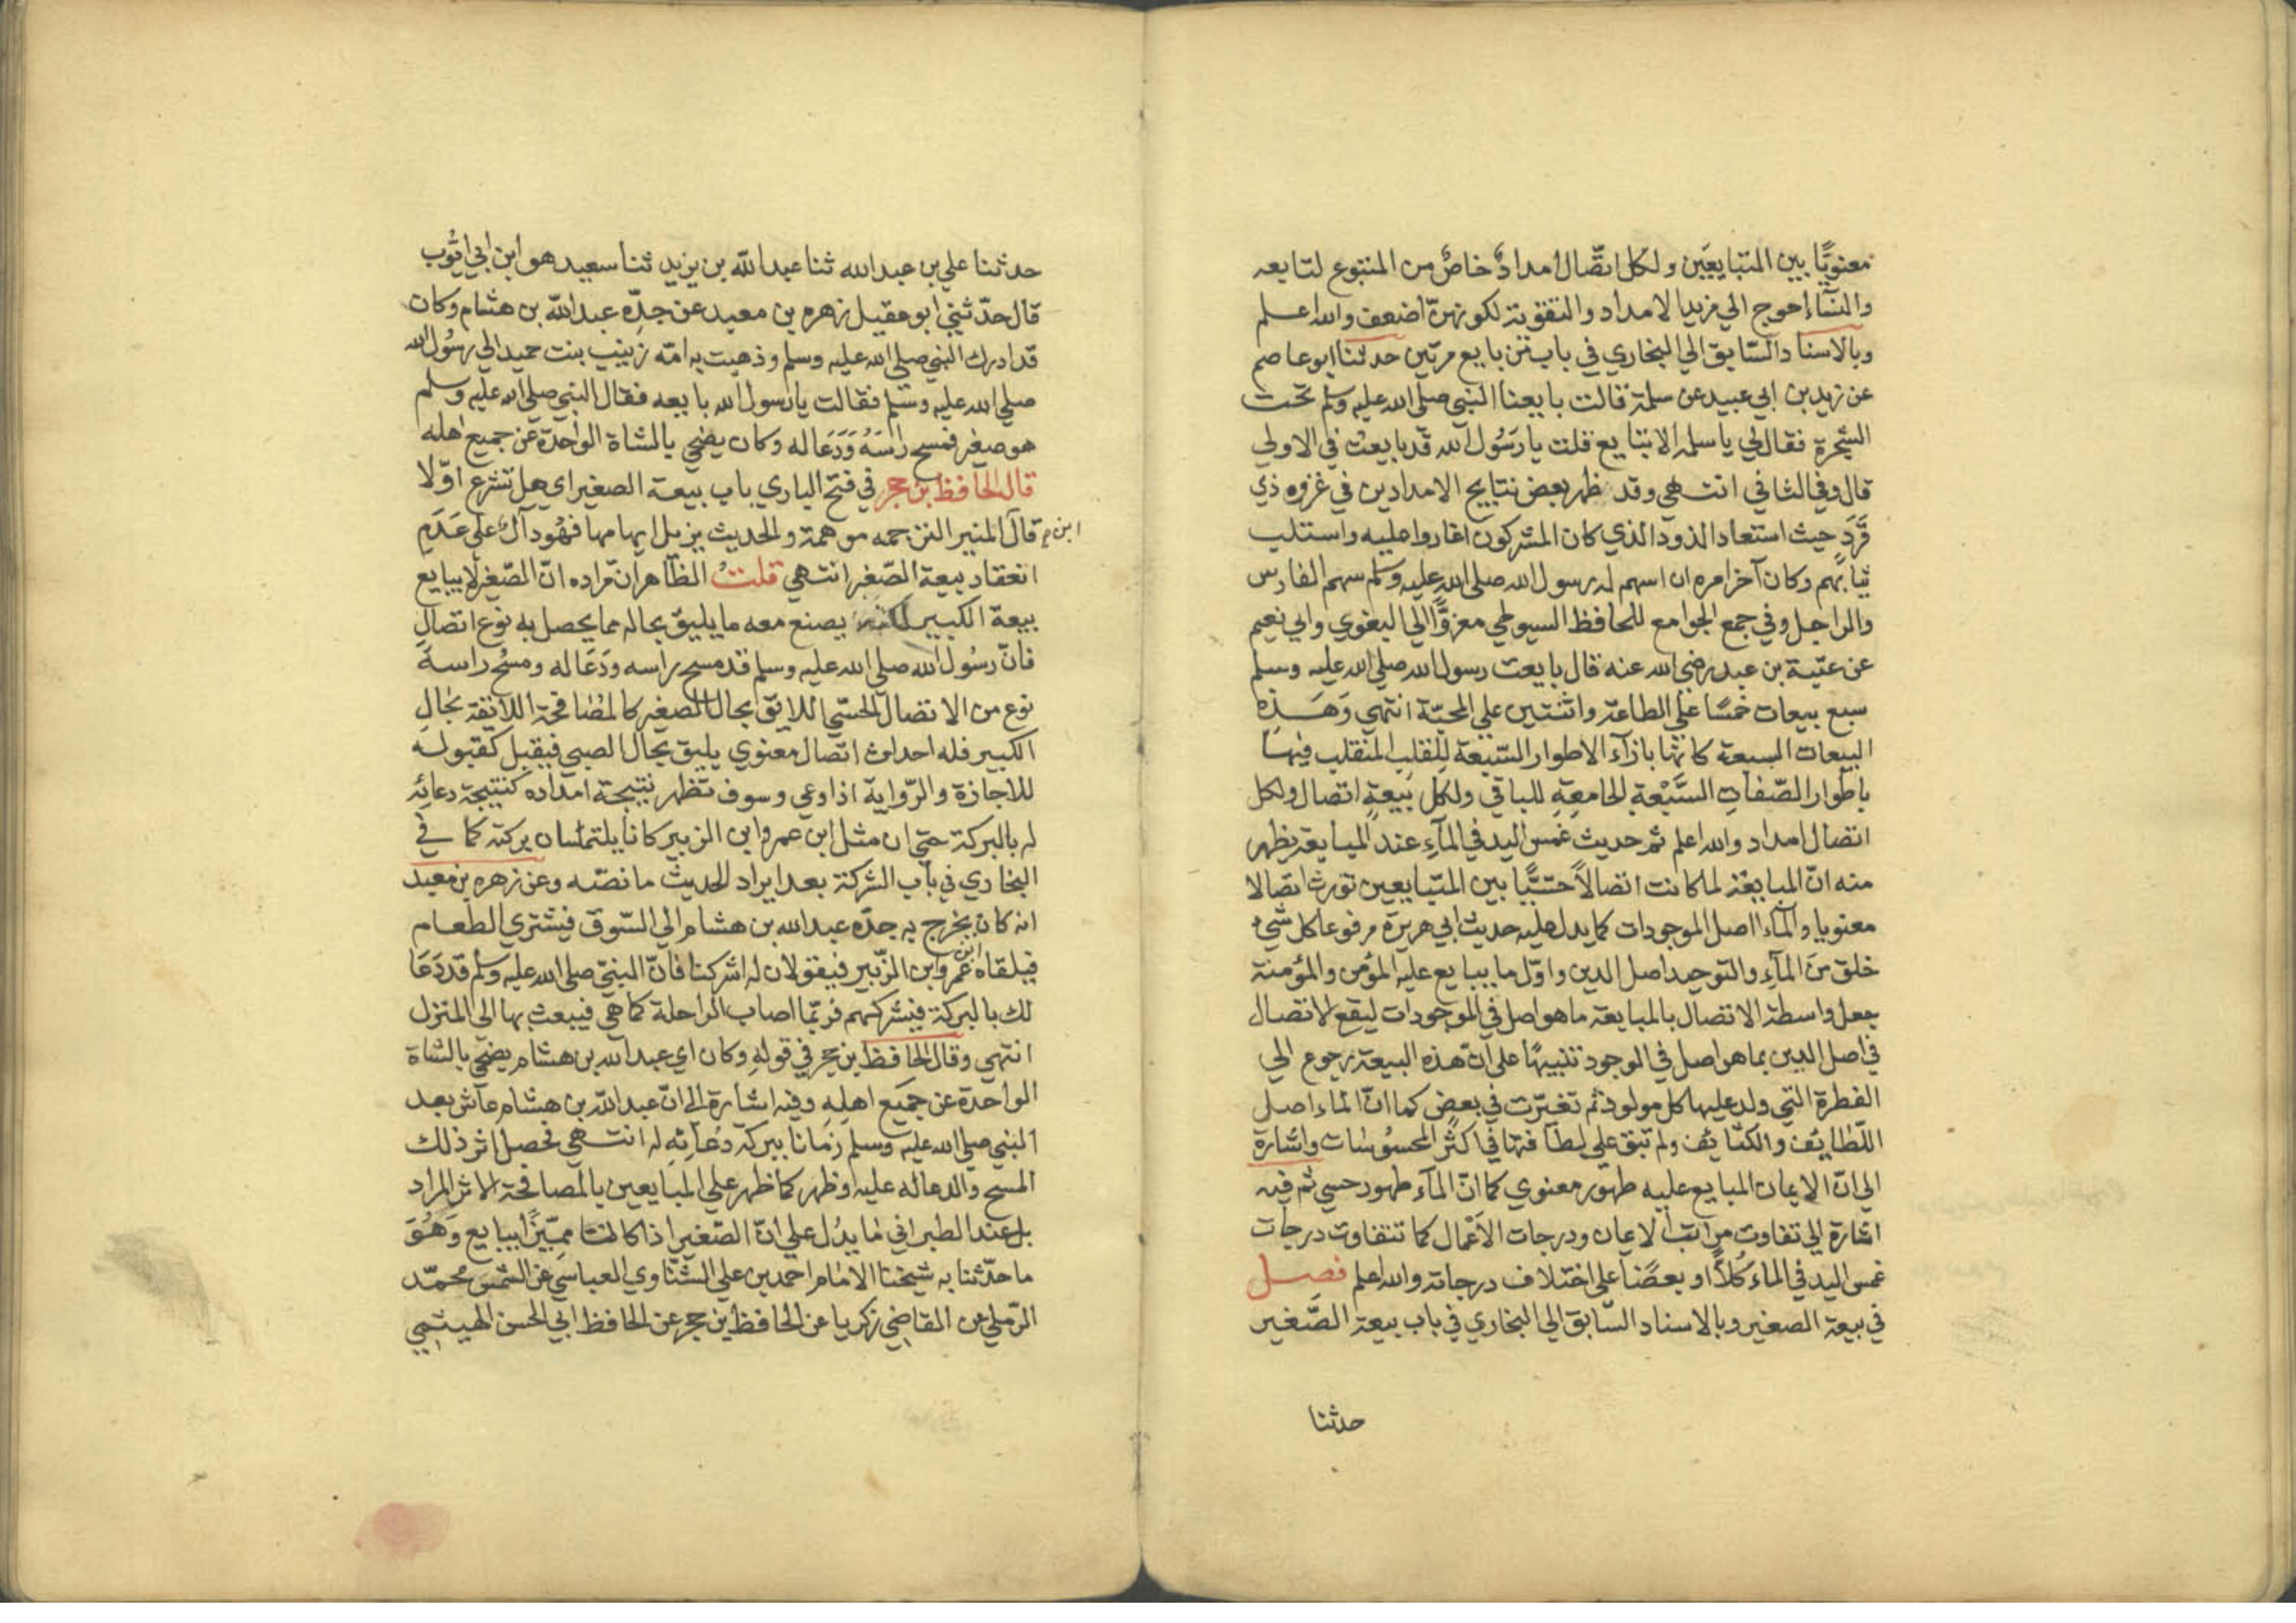 معنويًّا بين المتبايعَين ولكل اتّصال امدادٌ خاصٌ من المتبوع لتابعه
والنسآء احوج الي مزيد الامداد والتقوية لكونهنّ اضعف والله اعلم
وبالاسناد السّابق الي البخاري في باب من بايع مرتين حدثنا ابو عاصم
عن يزيد بن ابي عبيد عن سلمة قالت بايعنا النبي صلي الله عليه وسلم تحت
الشجرة فقال لي يا سلمه الا تبايع قلت يا رَسُول الله قد بايعت في الاولي
قال وفي الثاني انتهي وقد ظهر بعض نتايج الامدادين في غزوه ذي
قَرَد حيث استعاد الذود الذي كان المشركون اغاروا عليه واستلب
ثيابهم وكان آخر امره ان اسهم له رسول الله صلي الله عليه وسلم سهم الفارس
والراجل وفي جمع الجوامع للحافظ السيوطي معزوًّا الي البغوي وابي نعيم
عن عتبة بن عبد رضي الله عنه قال بايعت رسول الله صلي الله عليه وسلم
سبع بيعات خمسًا علي الطاعة واثنتين علي المحبّة انتهي وَهَذِه
البيعات السبعة كانها بازآء الاطوار السّبعة للقلب المنقلب فيها
باطوار الصّفات السَّبْعة الجامعةِ للباقي ولكل بَيعةٍ اتصال ولكل
اتصال امداد والله اعلم ثم حديث غمس اليد في المآء عند المبايعة يظهر
منه انّ المبايعَة لما كانت اتصالاً حسّيًّا بين المتبايعين تورث اتصالا
معنويا والمآء اصل الموجودات كما يدل عليه حديث ابي هريرة مرفوعا كل شيء
خلق منَ المآءِ والتوحيد اصل الدين واوّل ما يبايع عليه المؤمن والمؤمنة
جعل واسطة الاتصال بالمبايعة ما هو اصل في الموجودات ليقع الاتصال
في اصل الدين بما هو اصل في الموجود تنبيهًا علي انّ هذه البيعة رجوع الي
الفطرة التي ولد عليها كل مولود ثم تغيّرت في بعض كما انّ الماء اصل
اللّطايف والكثايف ولم تبق علي لطافتها في اكثر المحسوسَات واشارة
الي انّ الايمان المبايع عليه طهور معنوي كما انّ المآء طهور حسي ثم فيه
اشارة الي تفاوت مراتب الايمان ودرجات الاَعْمال كما تتفاوت درجات
غمس اليد في الماء كُلاًّ او بعضًا علي اختلاف درجاته والله اعلم فصل
في بيعة الصغير وبالاسناد السّابق الي البخاري في باب بيعة الصَّغير
حدثنا
حدثنا علي بن عبد الله ثنا عبد الله بن يزيد ثنا سعيد هو ابن ابي ايّوب
قال حدّثني ابو عقيل زهره بن معبد عن جدِّه عبد الله بن هشام وكان
قد ادرك النبي صلي الله عليه وسلم وذهبت به امّه زينب بنت حميد الي رسُول الله
صلي الله عليه وسلم فقالت يا رسول الله بايعه فقال النبي صلي الله عليه وسلم
هو صغير فمسح راسَهُ وَدَعَا له وكان يضحي بالشاة الواحدة عن جميع اهله
قال الحافظ بن حجر في فتح الباري باب بيعة الصغير اي هل تشرع اوّلا
ابن م قال المنير الترجمه موهمة والحديث يزيل ايهامها فهُو دآلٌ علي عَدَمِ
انعقاد بيعة الصّغير انتهي قلتُ الظاهر انّ مراده انّ الصّغير لا يبايع
بيعة الكبير لكنه يصنع معه ما يليق بحاله مما يحصل به نوع اتصالٍ
فانّ رسُول الله صلي الله عليه وسلم قد مسح راسه ودَعَا له ومسْح راسهَ
نوع من الاتصال الحسّي اللايق بحال الصغير كالمصَافحة اللآئقة بحال
الكبير فله احداث اتصال معنوي يليق بحال الصبي فيقبل كقبوله
للاجازة والرّواية اذا وعي وسوف تظهر نتيجة امداده كنتيجة دعائِه
له بالبركة حتي ان مثل ابن عمر وابن الزبير كانا يلتمسان بركته كما في
البخاري في باب الشركة بعد ايراد الحديث ما نصّه وعن زهره بن معبد
انه كان يخرج به جدّه عبد الله بن هشام الي السّوق فيشتري الطعام
فيلقاه ابن عمر وابن الزّبير فيقولان له اشركنا فانّ النبيّ صلي الله عليه وسلم قد دَعَا
لك بالبركة فيشركهم فربّما اصاب الراحلة كما هي فيبعث بها الي المنزل
انتهي وقال الحافظ بن حجر في قوله وكان اي عبد الله بن هشام يضحّي بالشاة
الواحدة عن جميع اهلِهِ وفيه اشارة الي انّ عبد الله بن هشام عاش بعد
النبي صلي الله عليه وسلم زمَانا ببركة دُعآئِهِ له انتهي فحصل اثر ذلك
المسح والدعا له عليه وظهر كما ظهر علي المبايعين بالمصافحة الاثر المراد
بل عند الطبراني مَا يدُل علي انّ الصّغير اذا كان مميّزًا يبايع وَهُوَ
ما حدّثنا به شيخنا الامام احمد بن علي الشنّاوي العباسي عن الشمس محمّد
الرّملي عن القاضي زكريا عن الحافظ بن حجر عن الحافظ ابي الحسن الهيثمي